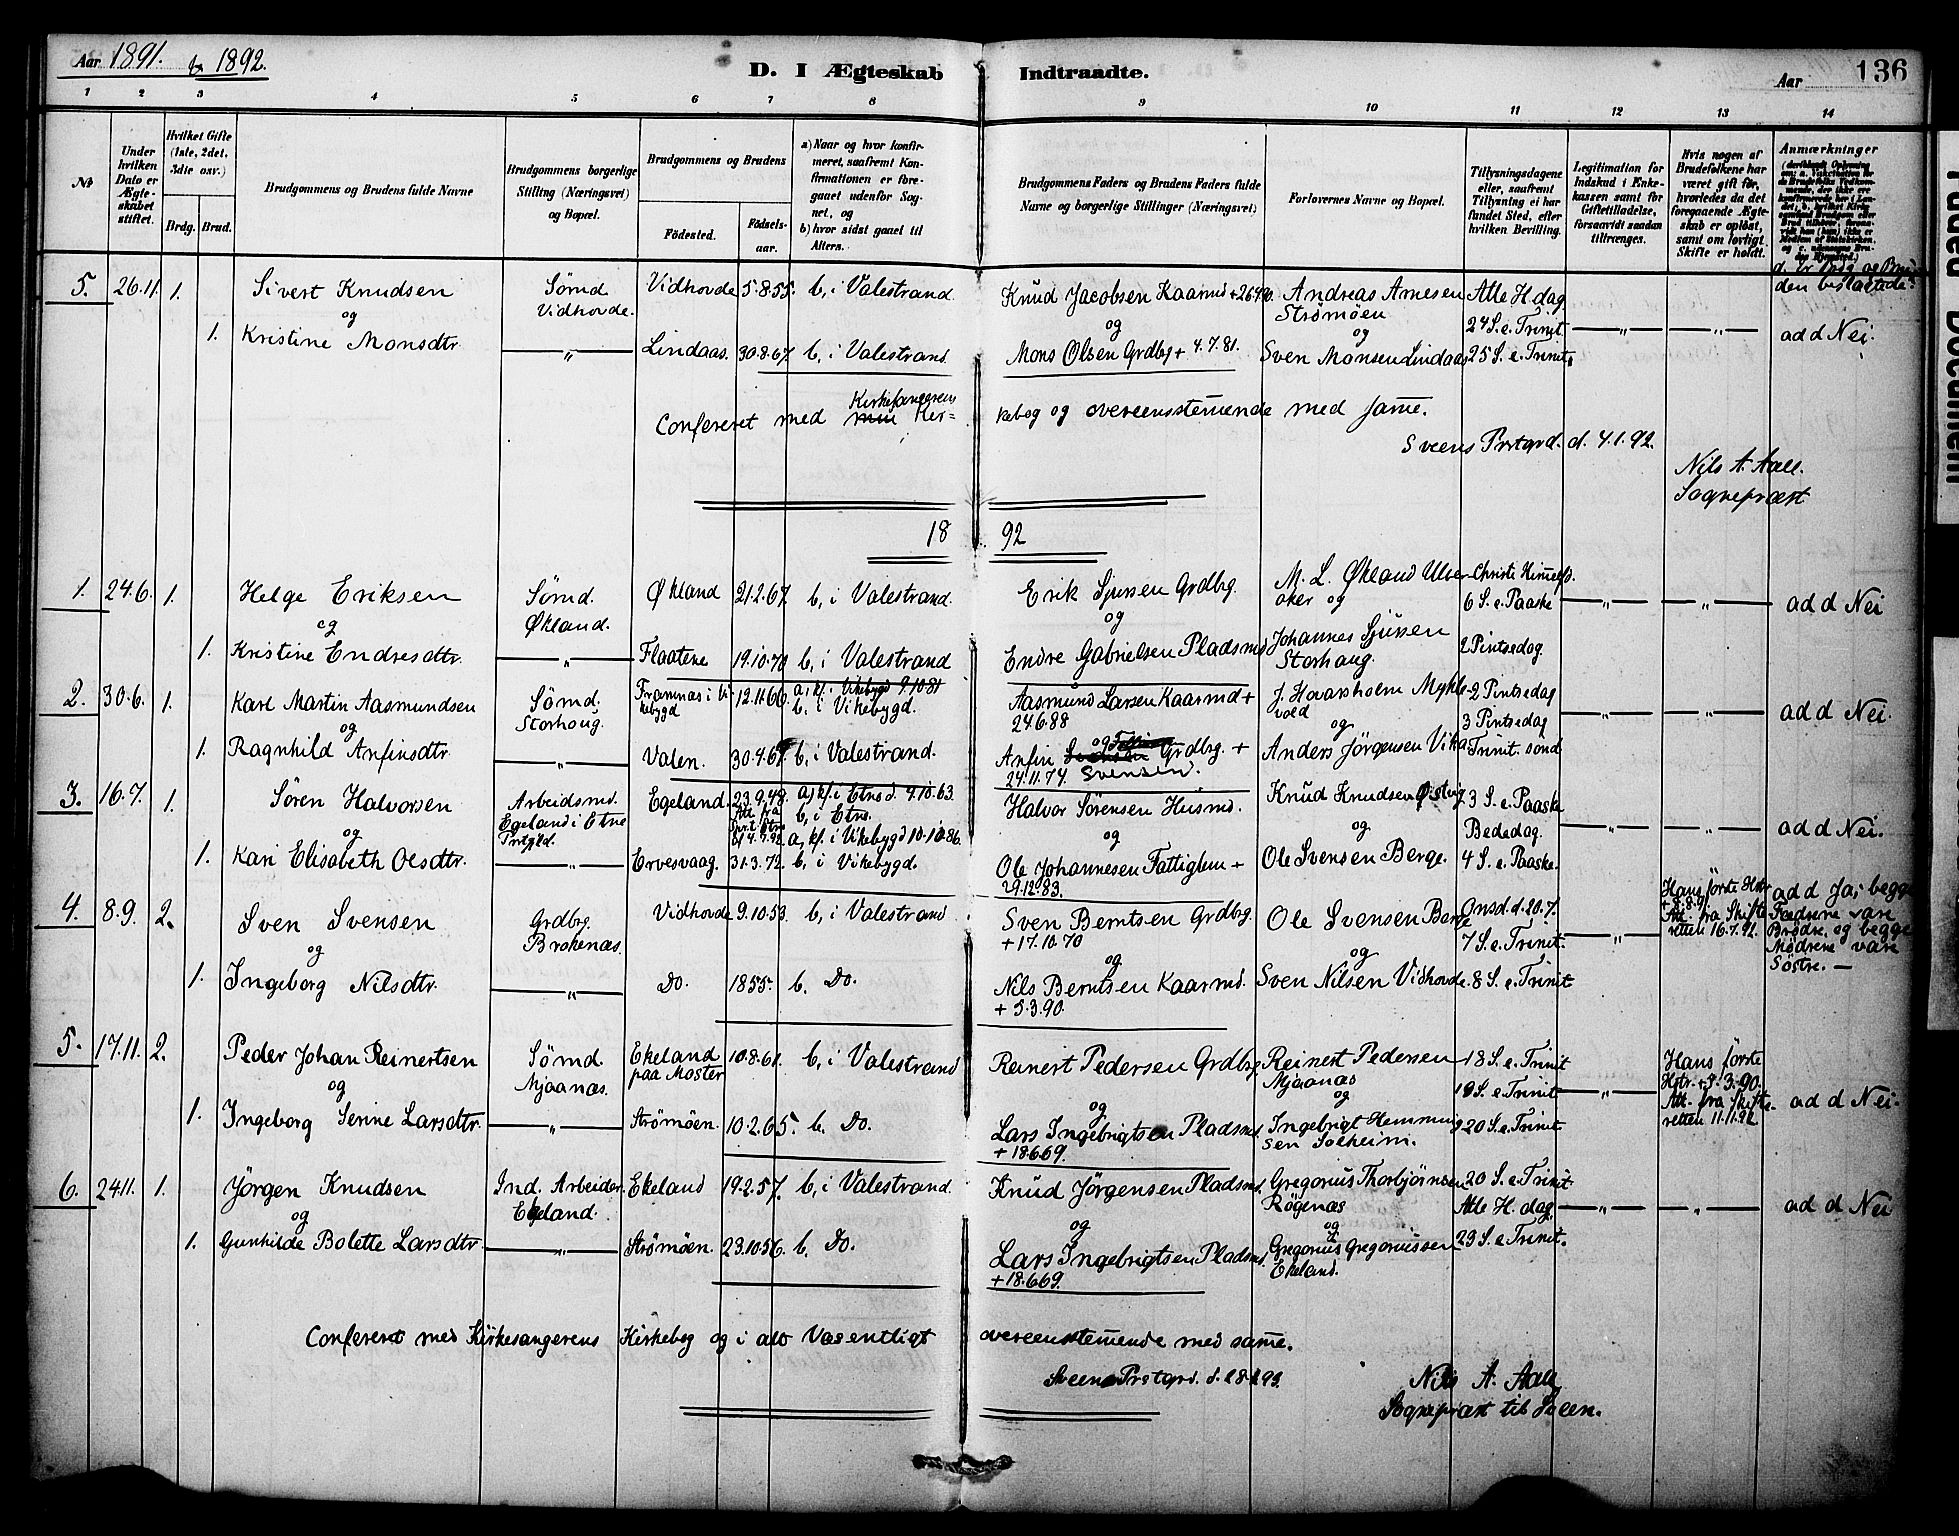 Aar 1891. & 1892.
D. I Ægteskab Indtraadte.
Aar 136
1 2 3 4 5 6 7 8 9 10 11 12 13 14
No
Under hvilken Dato er Ægteskabet stiftet.
Hvilket Gifte (1ste, 2det, 3die osv.)
Brdg. Brud.
Brudgommens og Brudens fulde Navne
Brudgommens borgerlige Stilling (Næringsvei) og Bopæl.
Brudgommens og Brudens
Fødested. Fødselsaar.
a) Naar og hvor konfirmeret, saafremt Konfirmationen er foregaaet udenfor Sognet, og
b) hvor sidst gaaet til Alters.
Brudgommens Faders og Brudens Faders fulde Navne og borgerlige Stillinger (Næringsvei)
Forlovernes Navne og Bopæl.
Tillysningsdagene eller, saafremt Tillysning ei har fundet Sted, efter hvilken Bevilling.
Legitimation for Indskud i Enkekassen samt for Giftetilladelse, forsaavidt saadan tiltrænges.
Hvis nogen af Brudefolkene har været gift før, hvorledes da det foregaaende Ægteskab er opløst, samt om lovligt Skifte er holdt.
Anmærkninger
5. 26.11. 1. Sivert Knudsen Sømd. Vidhovde 5.8.55. b, i Valestrand. Knud Jacobsen Kaarmd + Andreas Arnesen Alle H. dag
og Vidhovde. og Strømøen 24 S. e. Trinit. — „ — — „ — ad d Nei.
1. Kristine Monsdtr. — „ — Lindaas. 30.8.67. b, i Valestrand. Mons Olsen Grdbg + 4.7.81. og Sven Monsen Lindaas 25 S. e. Trinit.
Conferert med Kirkesangerens Kirkebog og overeensstemmende med same.
Sveens Prstgrd. d. 4.1.92.
Nils A. Aall.
Sognepræst
18 92
1. 24.6. 1. Helge Eriksen Sømd. Økland 21.2.67. b, i Valestrand. Erik Sjursen Grdbg. M. L. Økland Christi Himmelfd.
og Økland. og og 6 S. e. Paaske — „ — — „ — ad d Nei
1. Kristine Endresdtr. — „ — Flaatene 19.10.70 b, i Valestrand Endre Gabrielsen Pladsmd Johannes Sjursen Storhaug. 2 Pintsedag.
2. 30.6. 1. Karl Martin Aasmundsen Sømd. Framnæs i Vikebygd 12.11.66. a, kf. i Vikebygd 9.10.81 b. i Vikebygd. Aasmund Larsen Kaarmd + 24.6.88 J. Havarsholm Myklevold 2 Pintsedag
og Storhoug. og 3 Pintsedag — „ — — „ — ad d Nei.
1. Ragnhild Anfinsdtr. — „ — Valen. 30.4.67. b, i Valestrand. Anfin Svensen Grdbrg. + 24.11.74. Anders Jørgensen Vika Trinit. sønd.
3. 16.7. 1. Søren Halvorsen Arbeidsmd. Egeland i Etne Prstgjld. Egeland. 23.9.48. a, kf. i Etne d. 4.10.63. b, i Etne. Halvor Sørensen Husmd. Knud Knudsen 3 S. e. Paaske
og og og Bededag. — „ — — „ — ad d Nei.
1. Kari Elisabeth Olsdtr. — „ — Ervesvaag. 31.3.72. a, kf. i Vikebygd 10.10.86. b, i Vikebygd. Ole Johannesen Fattiglem + 29.12.83. Ole Svensen Berge. 4 S. e. Paaske.
4. 8.9. 2. Sven Svensen Grdbrg. Vidhovde 9.10.53. b, i Valestrand Sven Berntsen Grdbrg. + 17.10.70 Ole Svensen Berge Onsd. d. 20.7. Hans første Hstr + 8.8.91. Att. fra Skifteretten 16.7.92. ad d Ja, begge Fædrene vare Brødre, og begge Mødrene vare Søstre. —
og Brokenæs. og og 7 S. e. Trinit. — „ —
1. Ingeborg Nilsdtr. — „ — Do. 1855. b. Do. Nils Berntsen Kaarmd. + 5.3.90. Sven Nilsen Vidhovde. 8 S. e. Trinit
5. 17.11. 2. Peder Johan Reinertsen Sømd. Ekeland paa Moster 10.8.61. b, i Valestrand Reinert Pedersen Grdbg Reinert Pedersen Njaanæs 18 S. e. Trinit Hans første Hstr. + 5.3.90. Att. fra Skifteretten 11.11.92.
og Njaanæs. og og 19 S. e. Trinit — „ — ad d Nei.
1. Ingeborg Serine Larsdtr. — „ — Strømøen. 10.2.65. b. Do. Lars Ingebrigtsen Pladsmd. + 18.6.69. Ingebrigt Hemmingsen Solheim. 20 S. e. Trinit.
6. 24.11. 1. Jørgen Knudsen Ind. Arbeider. Ekeland 19.2.57. b, i Valestrand. Knud Jørgensen Pladsmd. Gregorius Thorbjørnsen Røgenæs 20 S. e. Trinit.
og Ekeland. og og Alle H. dag. — „ — — „ — ad d Nei
1. Gunhilde Bolette Larsdtr. — „ — Strømøen. 23.10.56. b. Do. Lars Ingebrigtsen Pladsmd. + 18.6.69. Gregorius Gregoriussen Ekeland. 23 S. e. Trinit.
Conferert med Kirkesangerens Kirkebog og i alt Væsentligt overeenstemmende med same.
Sveens Prstgrd.
Nils A. Aall
Sognepræst til Sveen.